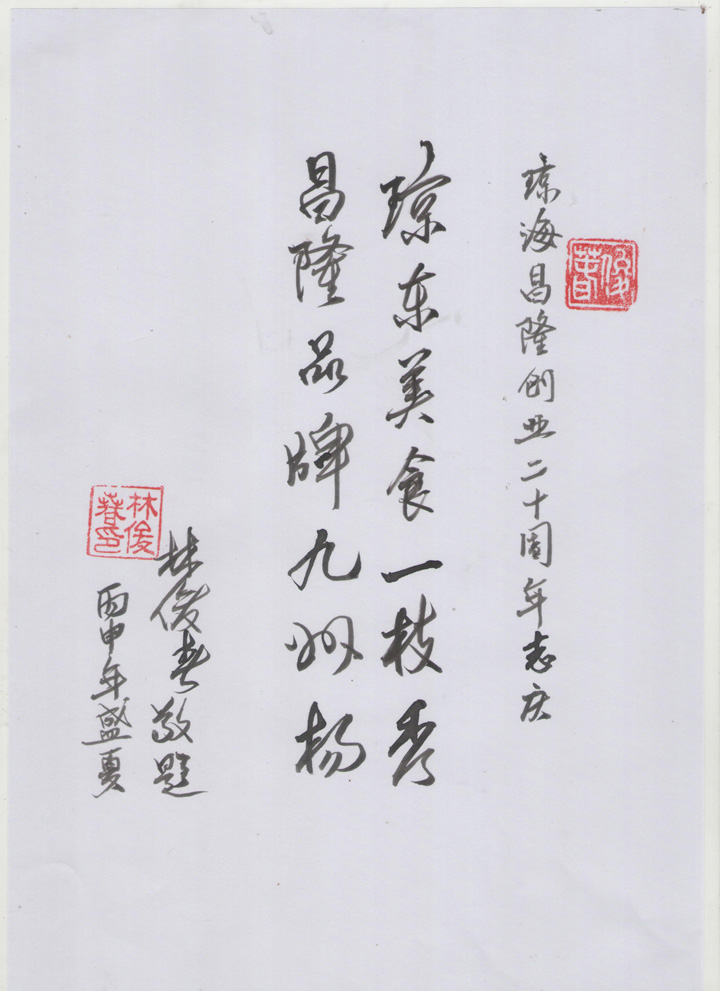 琼海昌隆创业二十周年志庆
俊春
琼东美食一枝秀
昌隆品牌九州杨
林俊春敬题
丙申年盛夏
林俊春印